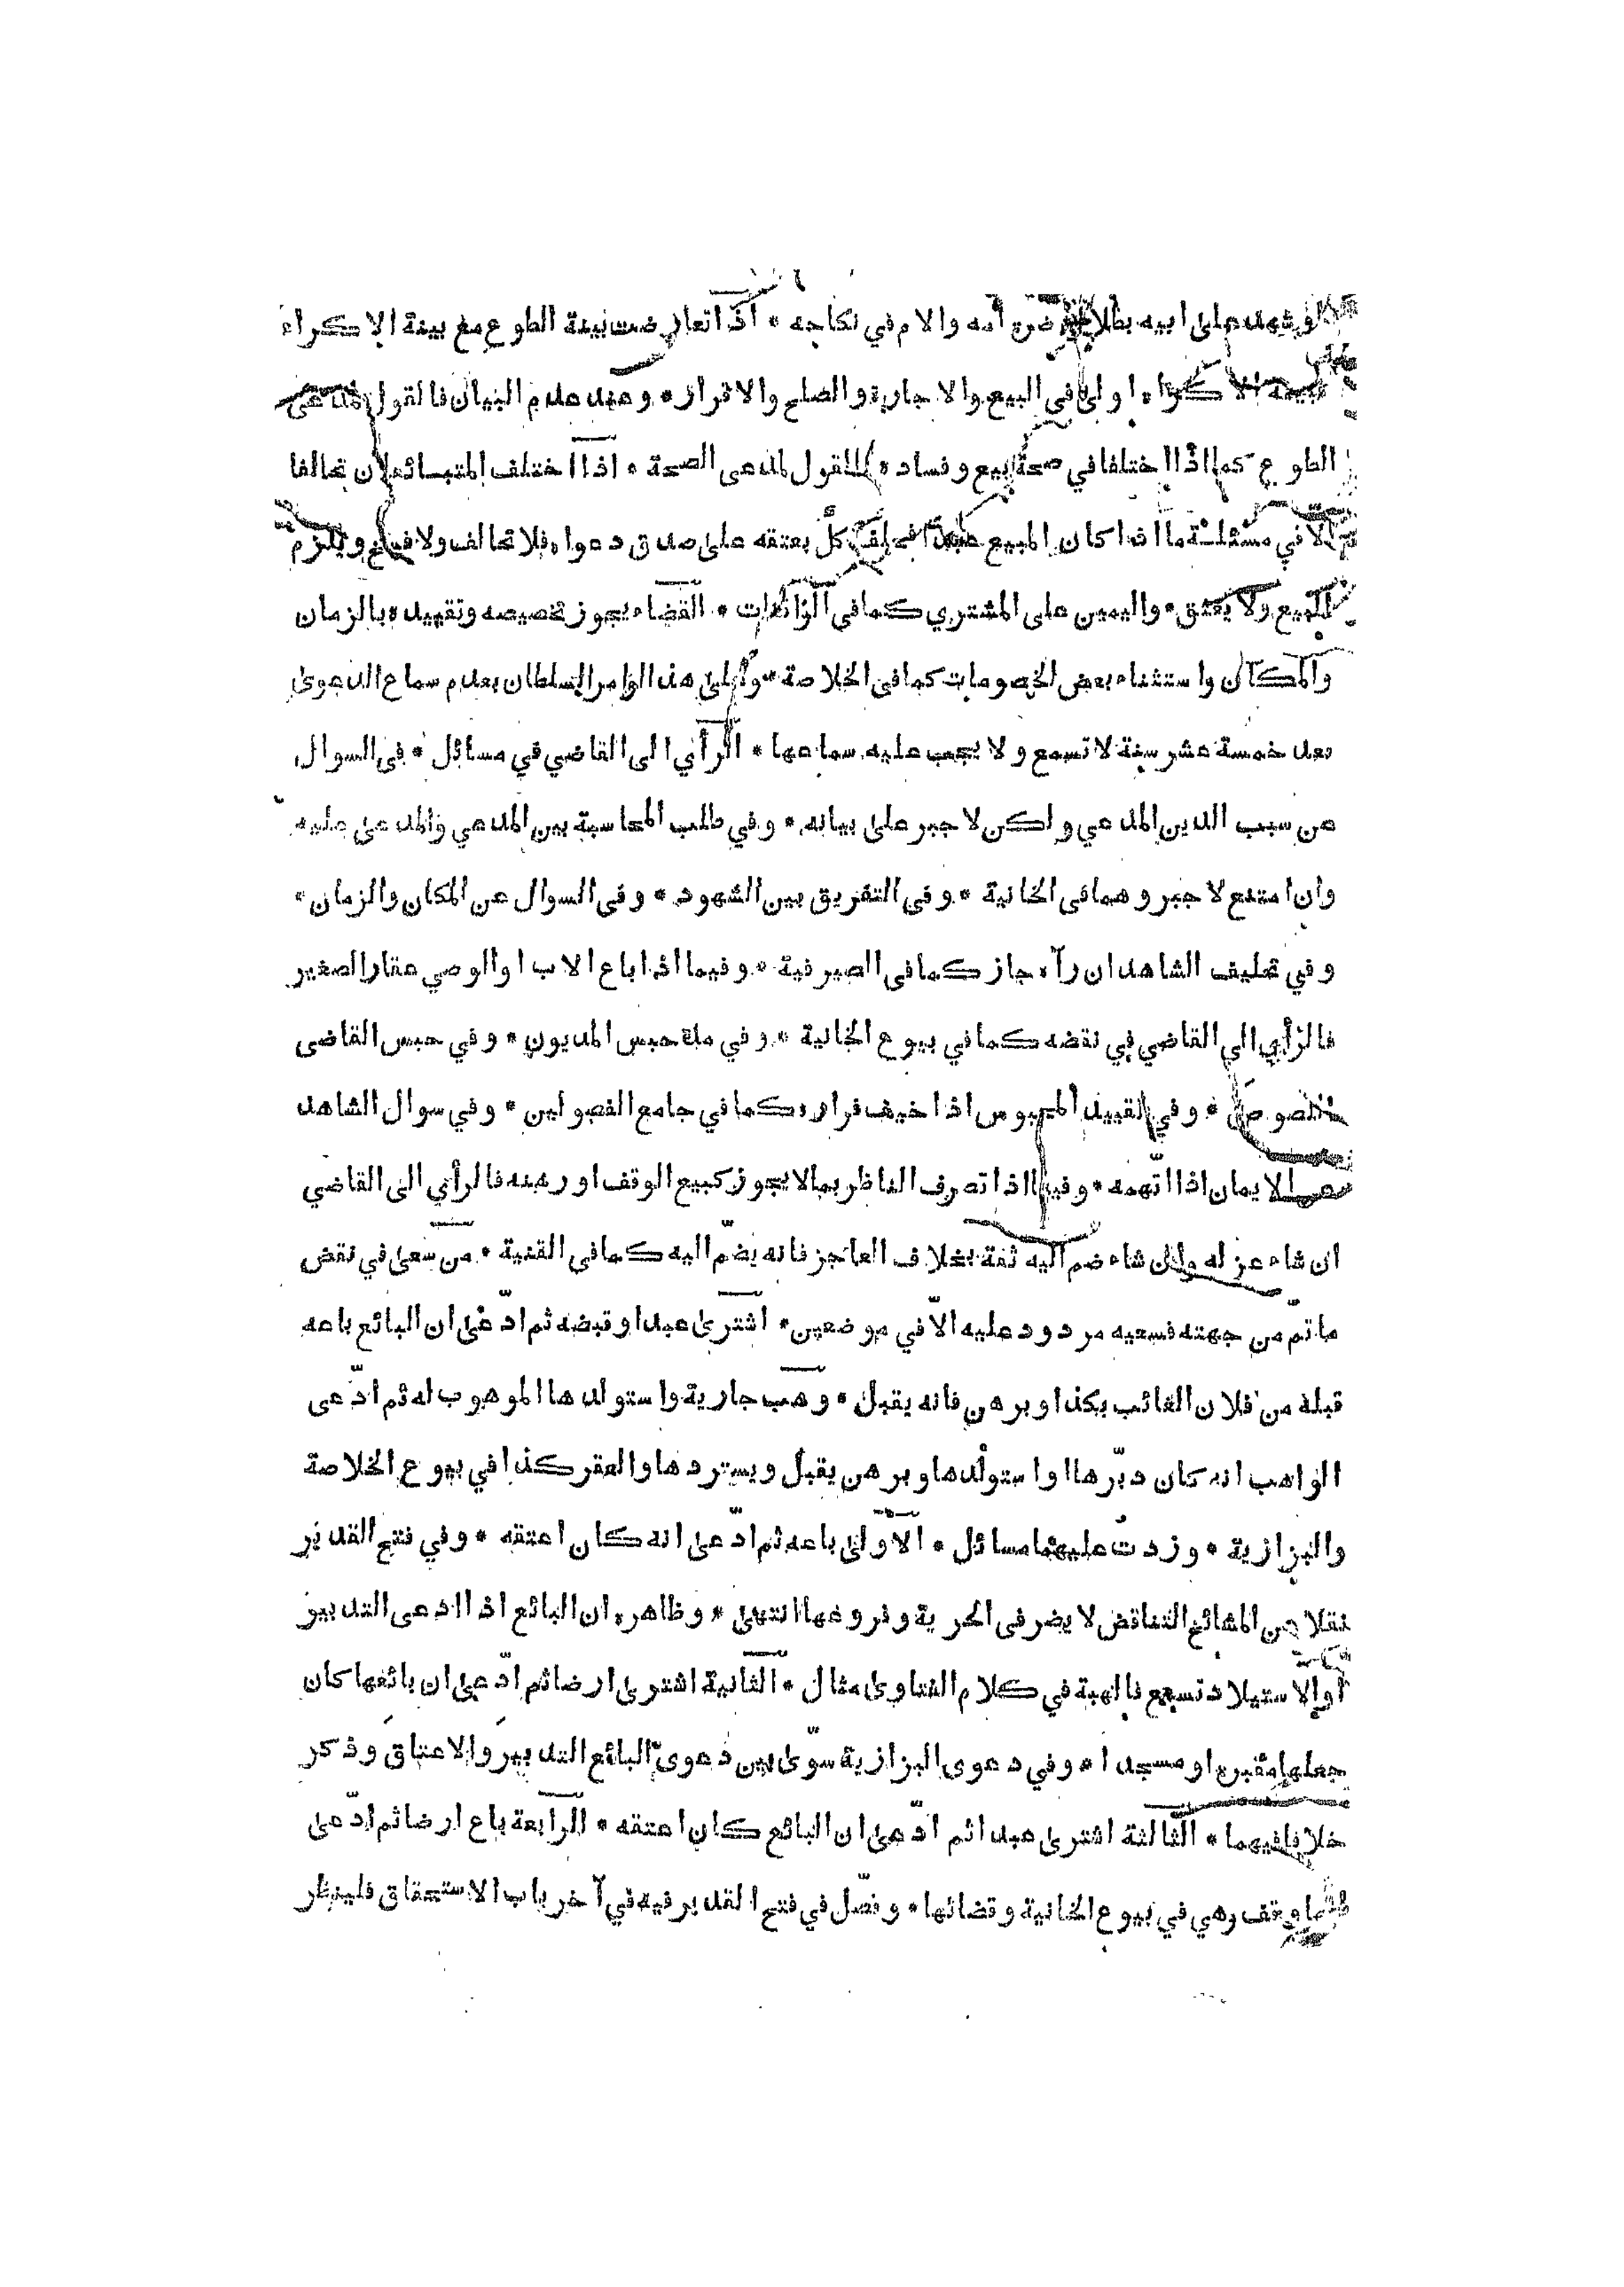 لو شهد على ابيه بطلاق ضرة امه والام في نكاحه * اذا تعارضت بينة الطوع مع بينة الاكراه
فبينة الاكراه اولى في البيع والاجارة والصلح والاقرار * وعند عدم البيان فالقول لمدعى
الطوع كما اذا اختلفا في صحة بيع وفساده فالقول لمدعى الصحة * اذا اختلف المتبائعان تحالفا
الّا في مسئلة ما اذا كان المبيع عبدا فحلف كلّ بعتقه على صدق دعواه فلا تحالف ولا فسخ ويلزم
البيع ولا يعتق * واليمين على المشتري كما في الواقعات * القضاء يجوز تخصيصه وتقييده بالزمان
والمكان واستثناء بعض الخصومات كما فى الخلاصة * وعلى هذا لو امر السلطان بعدم سماع الدعوى
بعد خمسة عشر سنة لا تسمع ولا يجب عليه سماعها * الرأي الى القاضي في مسائل * فى السوال
عن سبب الدين المدعي ولكن لا جبر على بيانه * وفي طلب المحاسبة بين المدعي والمدعى عليه
وان امتنع لا جبر وهما فى الخانية * وفى التفريق بين الشهود * وفى السوال عن المكان والزمان *
وفي تحليف الشاهد ان رآه جاز كما فى الصيرفية * وفيما اذا باع الاب او الوصي عقار الصغير
فالرأي الي القاضي في نقضه كما في بيوع الخانية * وفي مدة حبس المديون * وفي حبس القاضى
* وفي تقييد المحبوس اذا خيف فراره كما في جامع الفصولين * وفي سوال الشاهد
عن الايمان اذا اتّهمه * وفيما اذا تصرف الناظر بما لا يجوز كبيع الوقف او رهنه فالرأي الى القاضي
ان شاء عزله وان شاء ضم اليه ثقة بخلاف العاجز فانه يضمّ اليه كما فى القنية * من سعى في نقض
ما تمّ من جهته فسعيه مردود عليه الّا في موضعين * اشترى عبدا وقبضه ثم ادّعى ان البائع باعه
قبله من فلان الغائب بكذا وبرهن فانه يقبل * وهب جارية واستولدها الموهوب له ثم ادّعى
الواهب انه كان دبّرها او استولدها وبرهن يقبل ويستردها والعقر كذا في بيوع الخلاصة
والبزازية * وزدت عليهما مسائل * الاولى باعه ثم ادّعى انه كان اعتقه * وفي فتح القدير
نقلا عن المشائخ التناقض لا يضر فى الحرية وفروعها انتهى * وظاهره ان البائع اذا ادعى التدبير
او الاستيلاد تسمع فالهبة في كلام الفتاوى مثال * الثانية اشترى ارضا ثم ادّعى ان بائعها كان
جعلها مقبرة او مسجدا * وفي دعوى البزازية سوّى بين دعوى البائع التدبير والاعتاق وذكر
خلافا فيهما * الثالثة اشترى عبدا ثم ادّعى ان البائع كان اعتقه * الرابعة باع ارضا ثم ادّعى
انها وقف وهي في بيوع الخانية وقضائها * وفصّل في فتح القدير فيه في آخر باب الاستحقاق فلينظر